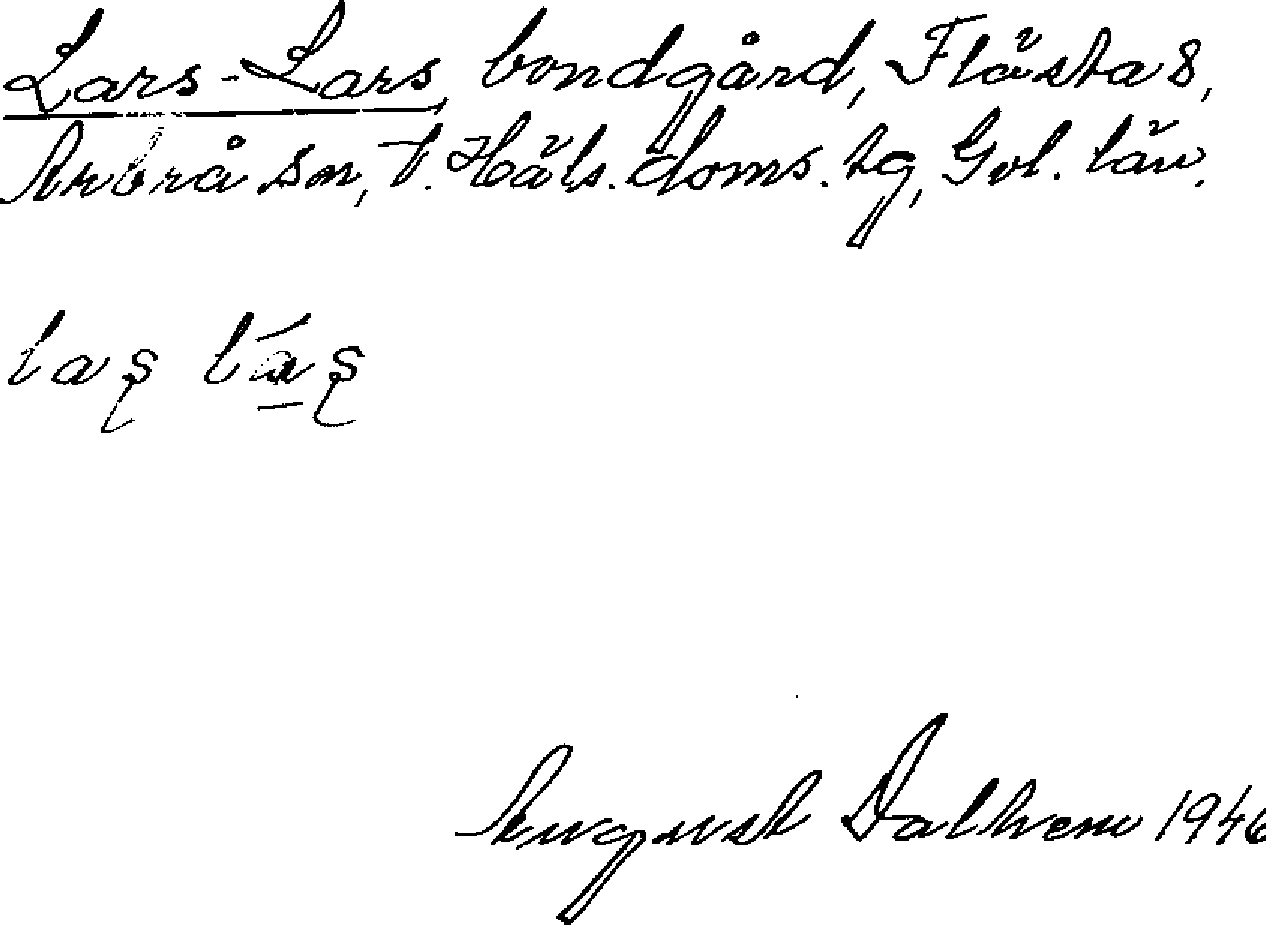 Lars-Lars, bondgård, Flästa 8,
Arbrå sn, V. Häls. doms. tg, Gvl. län.
August Dalhem 1946